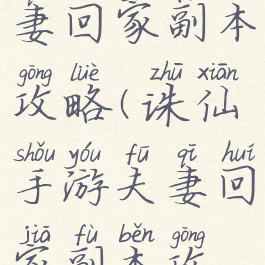 妻回家副本
gōng lüè zhū xiān
攻略(诛仙
shǒu yóu fū qī huí
手游夫妻回
jiā fù běn gōng
家副本攻